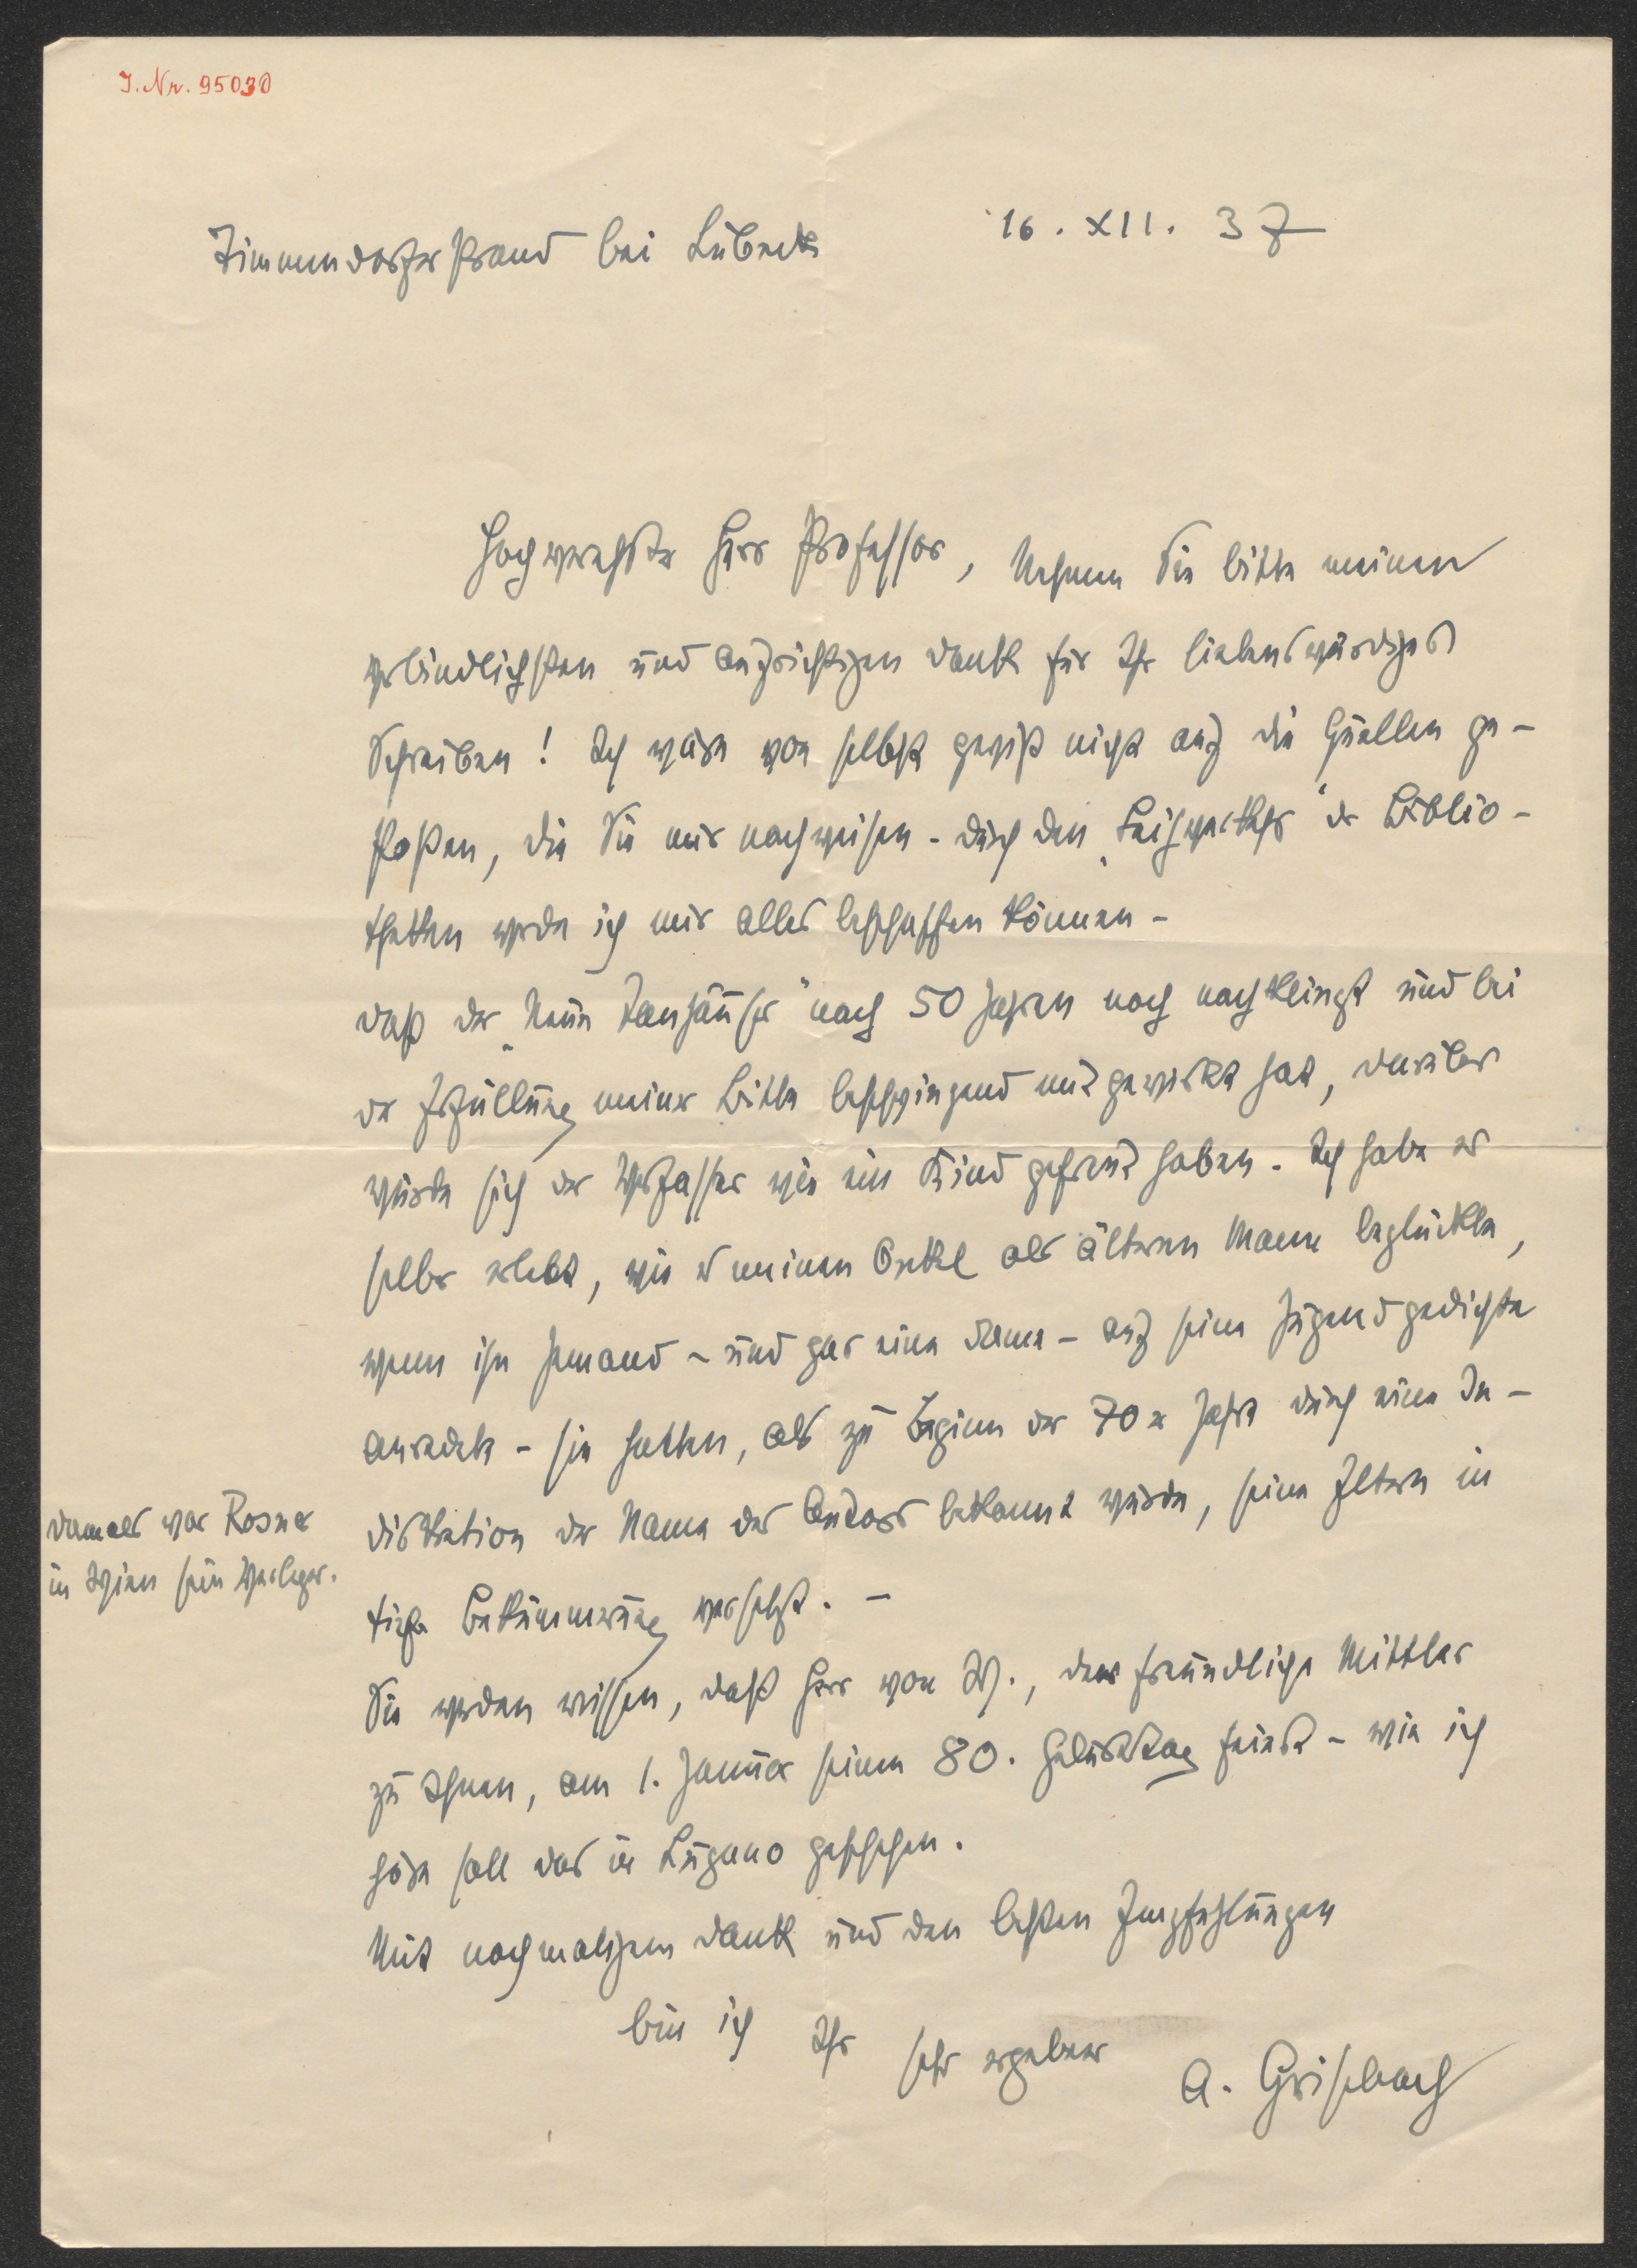 J. Nr. 95030
Timmendorfer Strand bei Lübeck
16. XII. 37
Hochverehrter Herr Professor, Nehmen Sie bitte meinen
verbindlichsten und aufrichtigen Dank für Ihr liebenswürdiges
Schreiben! Ich wäre von selbst gewiß nicht auf die Quellen ge-
stoßen, die Sie mir nachweisen - durch den „Leihverkehr" der Biblio-
theken werde ich mir alles beschaffen können -
Daß der „Neue Tanhäuser" nach 50 Jahren noch nachklingt und bei
der Erfüllung meiner Bitte beschwingend mitgewirkt hat, darüber
würde sich der Verfasser wie ein Kind gefreut haben. Ich habe es
selber erlebt, wie es meinen Onkel als älteren Mann beglückte,
wenn ihn Jemand - und gar eine Dame - auf seine Jugendgedichte
anredete - sie hatten, als zu Beginn der 70er Jahre durch eine In-
diskretion der Name des Autors bekannt wurde, seine Eltern in
tiefe Bekümmerung versetzt. -
damals war Rosner
in Wien sein Verleger.
Sie werden wissen, daß Herr von W., der freundliche Mittler
zu Ihnen, am 1. Januar seinen 80. Geburtstag feiert - wie ich
höre soll das in Lugano geschehen.
Mit nochmaligem Dank und den besten Empfehlungen
bin ich Ihr sehr ergebener
A. Grisebach